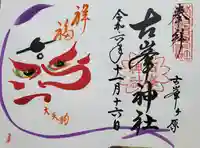 奉拝
古峯ヶ原
古峯神社
令和六年十一月十六日
祥福
大天狗